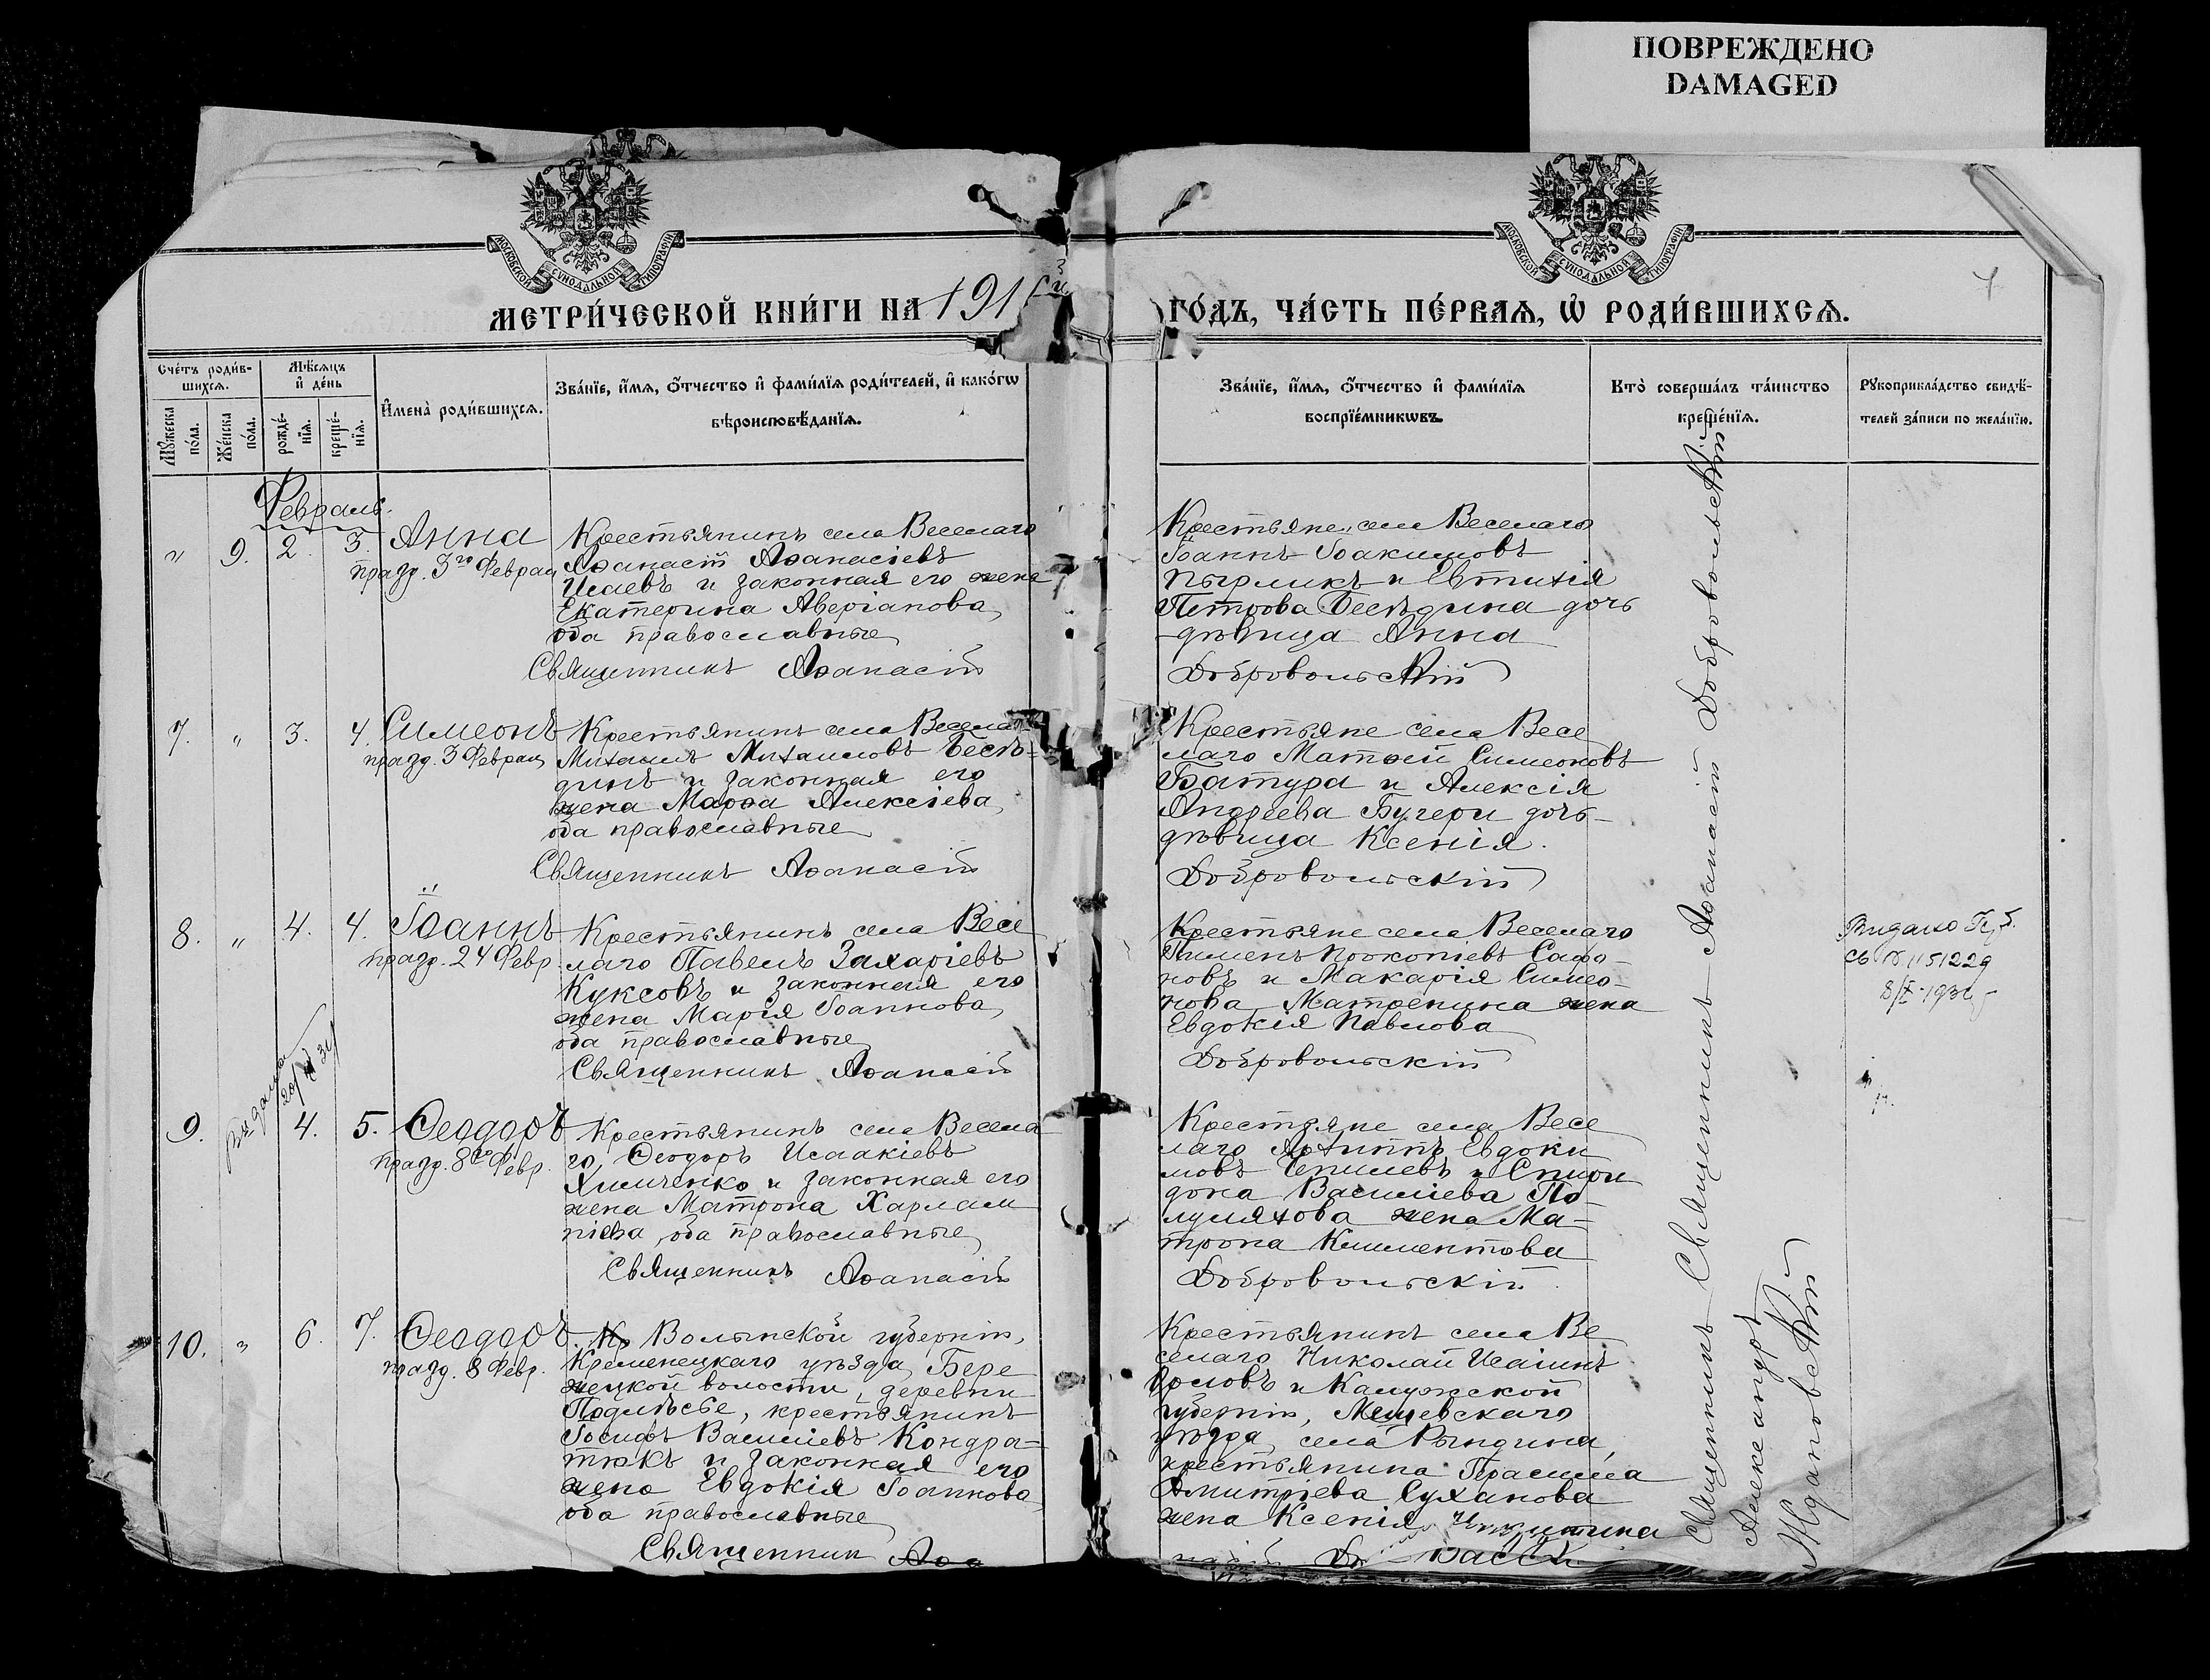 ПОВРЕЖДЕНО
DAMAGED
МОСКОВСКОЙ СѴНОДАЛЬНОЙ ТИПОГРАФІИ
МОСКОВСКОЙ СѴНОДАЛЬНОЙ ТИПОГРАФІИ
МЕТРИ́ЧЕСКОЙ КНИ́ГИ НА 191
ГО́ДЪ, ЧА́СТЬ ПЕ́РВАѦ, Ѡ҆ РОДИ́ВШИХСѦ.
Сче́тъ роди́в-
шихсѧ.
Мꙋжеска
по́ла.
Же́нска
по́ла.
Мѣ́сѧцъ
и҆ де́нь
рожде́-
нїѧ.
креще́-
нїѧ.
И҆мена̀ роди́вшихсѧ.
Зва́нїе, и҆́мѧ, ѻ҆́тчество и҆ фами́лїѧ роди́телей, и҆ како́гѡ
вѣроисповѣ́данїѧ.
Зва́нїе, и҆́мѧ, ѻ҆́тчество и҆ фами́лїѧ
воспрїе́мникѡвъ.
Кто̀ соверша́лъ та́инство
креще́нїѧ.
Рꙋкоприкла́дство свидѣ́-
телей за́писи по жела́нїю.
Февраль.
" 9. 2. 3. Анна
празд. 3го Феврал
Крестьянинъ села Веселаго
Аѳанасій Аѳанасіевъ
Исаевъ и законная его жена
Екатерина Аверіанова,
оба православные
Священникъ Аѳанасій
Крестьяне села Веселаго
Іоаннъ Іоакимовъ
Пырликъ и Евтихія
Петрова Бесѣдина дочь
дѣвица Анна
Добровольскій
7. " 3. 4. Симеонъ
празд. 3 Феврал
Крестьянинъ села Весела
Михаилъ Михаиловъ Бесѣ-
динъ и законная его
жена Марѳа Алексіева,
оба православные
Священникъ Аѳанасій
Крестьяне села Весе
лаго Матѳей Симеоновъ
Батура и Алексія
Андреева Бугери дочь-
дѣвица Ксенія.
Добровольскій
8. " 4. 4. Іоаннъ
празд. 24 Февр.
Крестьянинъ села Весе
лаго Павелъ Захаріевъ
Куксовъ и законная его
жена Марія Іоаннова,
оба православные
Священникъ Аѳанасій
Крестьяне села Веселаго
Пименъ Прокопіевъ Сафо-
новъ и Макарія Симео-
нова Матренина жена
Евдокія Павлова
Добровольскій
9. 4. 5. Ѳеодоръ
празд. 8го Февр.
Крестьянинъ села Весела
го, Ѳеодоръ Исаакіевъ
Химченко и законная его
жена Матрона Харлам
піева, оба православные
Священникъ Аѳанасій
Крестьяне села Весе
лаго Архиппъ Евдоки
мовъ и Спири
дона Василіева По-
луляхова жена Ма-
трона Климентова
Добровольскій
10. " 6. 7. Ѳеодоръ
празд. 8 Февр.
Кр Волынской губерніи,
Кременецкаго уѣзда, Бере
жецкой волости, деревни
Подлѣсье, крестьянинъ
Іосифъ Василіевъ Кондра-
тюкъ и законная его
жена Евдокія Іоаннова,
оба православные
Священник Аѳа
Крестьянинъ села Ве
селаго Николай Исаіинъ
и Калужской
губерніи, Мещевскаго
уѣзда, села Рындина,
крестьянина Герасима
Дмитріева Суханова
жена Ксенія Никитина
Священникъ Аѳанасій Добровольскій
Священникъ
Александръ
Ждановскій